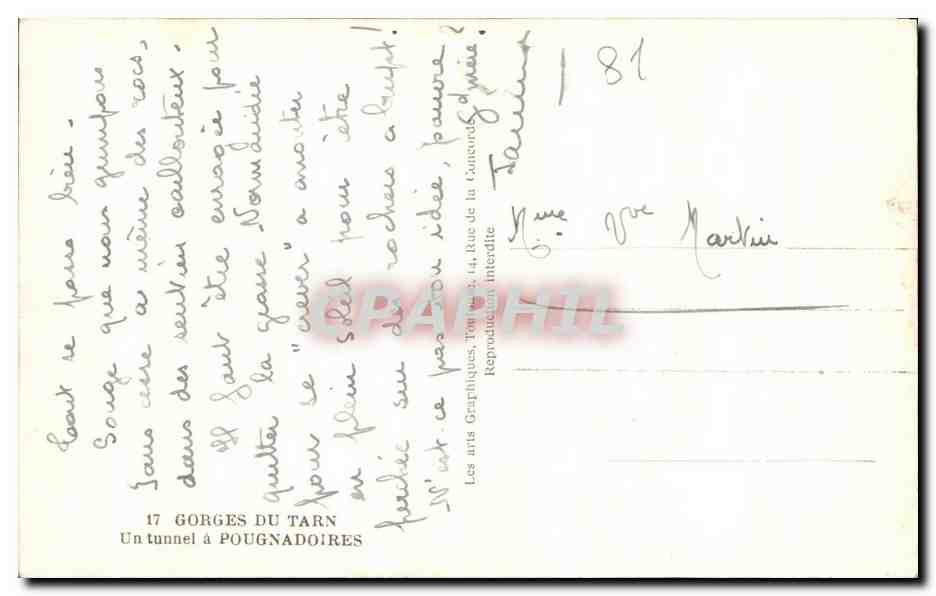 Tout se passe bien.
Songe que nous grimpons
sans cesse à même des rocs,
dans des sentiers caillouteux.
Il faut être enragée pour
quitter la grasse Normandie
pour se "crever" à monter
en plein soleil pour être
perchée sur des rochers à pic!
N'est-ce pas mon idée, pauvre
17 GORGES DU TARN
Un tunnel à POUGNADOIRES
Les arts Graphiques, Toulouse, 14, Rue de la Concorde
Reproduction interdite
81
Mme Vve Martin
CPARPHIL